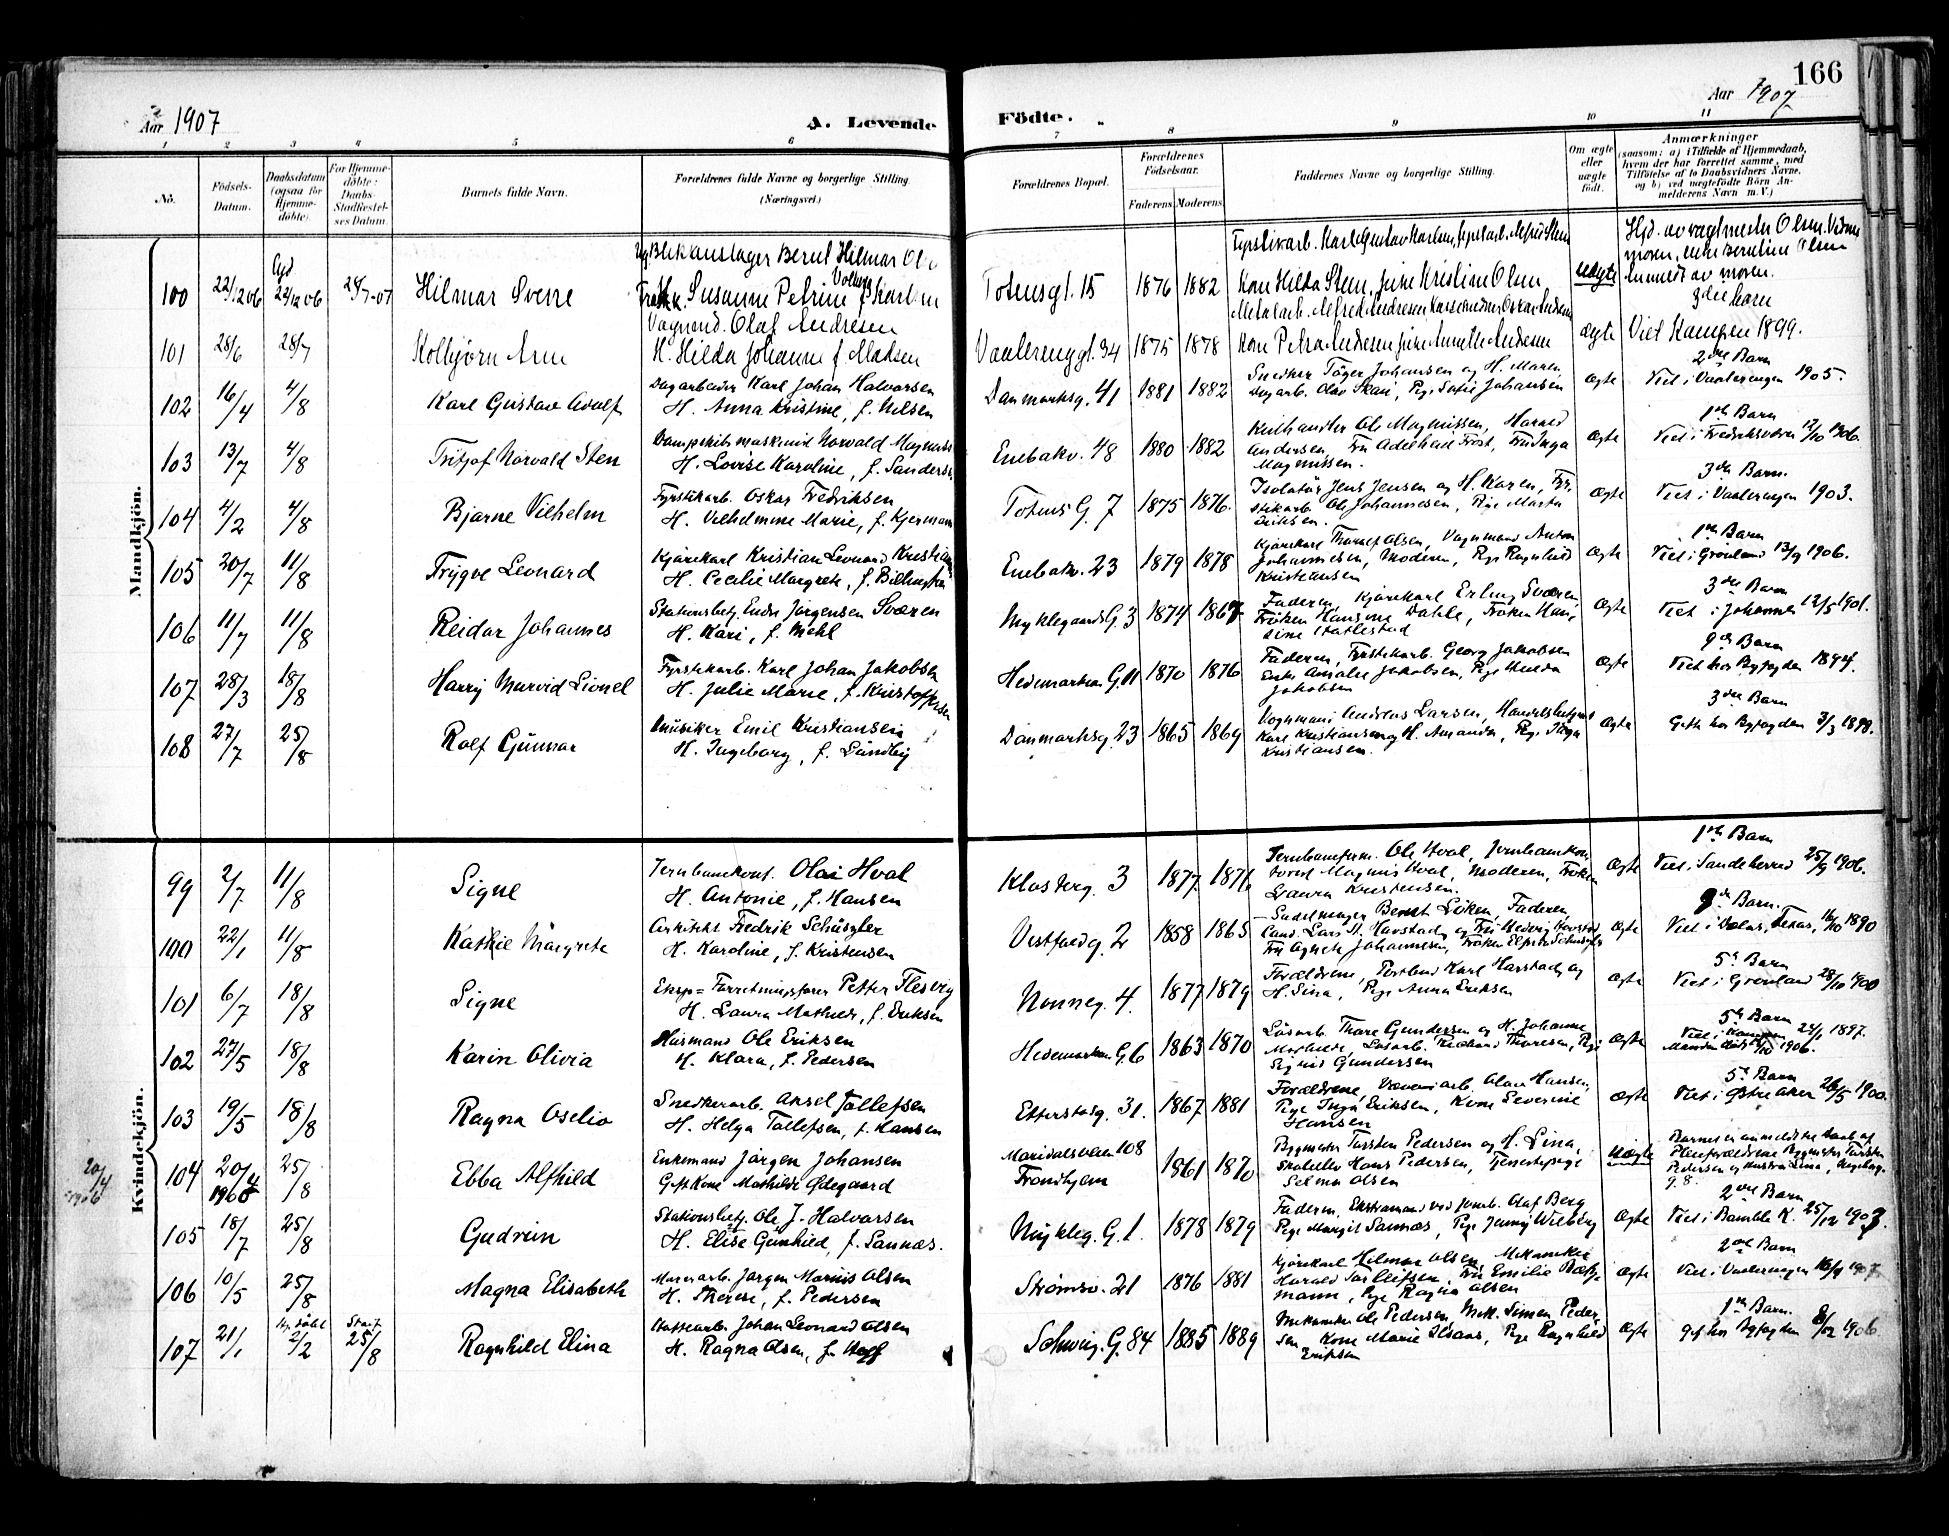 166
Aar 1907
A. Levende
Födte.
Aar 1907
1 2 3 4 5 6 7 8 9 10 11
No.
Födsels-Datum.
Daabsdatum (ogsaa for Hjemme-döbte).
For Hjemme-döbte: Daabs Stadfæstel-ses Datum.
Barnets fulde Navn.
Forældrenes fulde Navne og borgerlige Stilling. (Næringsvei.)
Forældrenes Bopæl.
Forældrenes Födselsaar.
Faderens Moderens
Faddernes Navne og borgerlige Stilling.
Om ægte eller uægte födt.
Anmærkninger
(saasom: a) i Tilfælde af Hjemmedaab, hvem der har forrettet samme, med Tilföielse af to Daabsvidners Navne, og b) ved uægtefödte Börn An-melderens Navn m. V.)
Mandkjön.
100 22/12 06 24/12 06 28/7-07 Hilmar Sverre
Blikkenslager Bernt Hilmar
Susanne Petrine Karlsen
Totensgt. 15 1876 1882
Fyrstikarb. Karl Gustav Karlsen, Fyrstarb. Alfred Steen
Kone Hilda Steen, Pike Kristine Olsen
uægte
Hjd. av vagtmester Olsen. Vidner
moren, enke Berntine Olsen
Anmeldt av moren.
101 28/6 28/7 Kolbjörn Arne
Vognmd. Olaf Andresen
H. Hilda Johanne f. Madsen
Vaalerenggt. 34 1875 1878
Metalarb. Alfred Andresen, Oskar Andresen
Kone Petra Andresen, Pike Annette Andresen
ægte
3die barn
Viet Kampen 1899.
102 16/4 4/8 Karl Gustav Adolf
Dagarbeider Karl Johan Halvorsen
H. Anna Kristine, f. Nilsen
Danmarksg. 41 1881 1882
Snedker Töger Johansen og H. Maren,
Dagarb. Olav Skari, Pige Sofie Johansen
ægte
2det Barn
Viet i Vaalerengen 1905.
103 13/7 4/8 Fritjof Norvald Sten
Dampskibsmaskinist Norvald Magnus
H. Lovise Karoline, f. Sanders
Enebakv. 48 1880 1882
Kulhandler Ole Magnussen, Harald
Andersen, Fru Adelheid Frost, Fru Inga
Magnussen.
ægte
1ste Barn
Viet i Fredriksværn 12/10 1906.
104 4/2 4/8 Bjarne Vilhelm
Fyrstikarb. Oskar Fredriksen
H. Vilhelmine Marie, f. Kjermann
Totens G. 7 1875 1876.
Isolatör Jens Jensen og H. Karen, Fyr-
stikarb. Ole Johannesen, Pige Marta
Eriksen.
ægte
3die Barn.
Viet i Vaalerengen 1903.
105 20/7 11/8 Trygve Leonard
Kjörekarl Kristian Leonard Kristian
H. Cecilie Margrete, f. Billingstad
Enebakv. 23 1879 1878
Kjörekarl Thoralf Olsen, Vognmand Anton
Johannesen, Moderen, Pige Ragnhild
Kristiansen
ægte
1ste Barn
Viet i Grönland 13/9 1906.
106 11/7 11/8 Reidar Johannes
Stationsbetj. Endre Jörgensen Sværen
H. Kari, f. Mehl
Myklegaards G. 3 1874 1867
Faderen, Kjörekarl Erling Sværen,
Fröken Hansine Dahle, Fröken Han-
sine
ægte
3die Barn
Viet i Johannes 12/5 1901.
107 28/3 18/8 Harry Marvid Lionel
Fyrstikarb. Karl Johan Jakobsen
H. Julie Marie, f. Kristoffersen
Hedemarken G. 11 1870 1876
Faderen, Fyrstikarb. Georg Jakobsen
Enke Amalie Jakobsen, Pige Hulda
Jakobsen
ægte
9de Barn
Viet hos Byfogden 1894.
108 27/7 25/8 Rolf Gunnar
Musiker Emil Kristiansen
H. Ingeborg, f. Lundby
Danmarksg. 23 1865 1869
Vognmand Andreas Larsen, Handelsbetjent
Karl Kristiansen og H. Amanda, Pige Inga
Kristiansen.
ægte
3die Barn
Gift hos Byfogden 3/3 1898.
Kvindekjön.
99 2/7 11/8 Signe
Jernbanekont. Olai Hval
H. Antonie, f. Hansen
Klosterg. 3 1877 1876
Jernbaneform. Ole Hval, Jernbanekon-
torist Magnus Hval, Moderen, Fröken
Laura Kristensen.
ægte
1ste Barn
Viet i Sandeherred 25/9 1906.
100 22/1 11/8 Kathie Margrete
Arkitekt Fredrik Schüszler
H. Karoline, f. Kristensen
Vestfoldg. 2 1858 1865
Sadelmager Bernt Löken, Faderen,
Cand. Lars H. Havstad og Fru Hedvig Havstad
Fru Agnete Johannesen, Fröken Schuszler
ægte
Barn.
Viet i Dalas, Texas, 16/10 1890
101 6/7 18/8 Signe
Exp= Forretningsförer Petter Flesvig
H. Laura Mathilde, f. Eriksen
Nonneg. 4. 1877 1879
Forældrene, Postbud Karl Harstad og
H. Lina, Pige Anna Eriksen
ægte
5te Barn
Viet i Grönland 28/10 1900
102 27/5 18/8 Karin Olivia
Husmand Ole Eriksen
H. Klara, f. Pedersen
Hedemarken G. 6 1863 1870
Lösarb. Thore Gundersen og H. Johanne
Mathilde, Lösarb. Thoresen, Pige
Signe Gundersen
ægte
5te Barn
Viet i Kampen 24/1 1897.
Manden död 1906.
103 19/5 18/8 Ragna Oselio
Snedkerarb. Aksel Tollefsen
H. Helga Tollefsen, f. Hansen
Etterstadg. 31. 1867 1881
Forældrene, Væveriarb. Olav Hansen,
Pige Inga Eriksen, Kone Severine
Hansen
ægte
5te Barn
Viet i Östre Aker 26/5 1900.
20/4 1906
104 20/4 1906 25/8 Ebba Alfhild
Enkemand Jörgen Johansen
Gift Kone Mathilde Ödegaard
Maridalsveien 108
Trondhjem
1861 1870
Bygmester Torsten Pedersen og H. Lina,
Hans Pedersen, Tjenestepige
Selma Olsen
uægte
Barnet er anmeldt til daab af
Pleieforældrene Bygmester Torsten
Pedersen og Hustru Lina, Ingeborg-
g. 8.
105 18/7 25/8 Gudrun
Stationsbetj. Ole J. Halvorsen
H. Elise Gunhild, f. Sannæs.
Mykleg. G. 1. 1878 1879
Faderen, Ekstramand ved Jernb. Olaf Berg
Pige Margit Sannæs, Pige Jenny Wiberg
ægte
2det Barn
Viet i Bamble K. 25/12 1903.
106 10/5 25/8 Magna Elisabeth
Murerarb. Jörgen Marius Olsen
H. Therese, f. Pedersen
Strömsv. 21 1876 1881
Kjörekarl Hilmar Olsen, Mekaniker
Harald Torleifsen, Fru Emilie
mann, Pige Ragna Olsen
ægte
2det Barn
Viet i Vaalerengen
107 21/1 Hj. döbt 2/2 Stadf. 25/8 Ragnhild Elina
Johan Leonard Olsen
H. Ragna Olsen, f. Hoff
Schweig. G. 84 1885 1889
Mekaniker Ole Pedersen, Mek. Simen Peder-
sen, Kone Marie Ilsaas, Pige Ragnhild
Eriksen
ægte
1ste Barn.
Gift hos Byfogden 8/12 1906